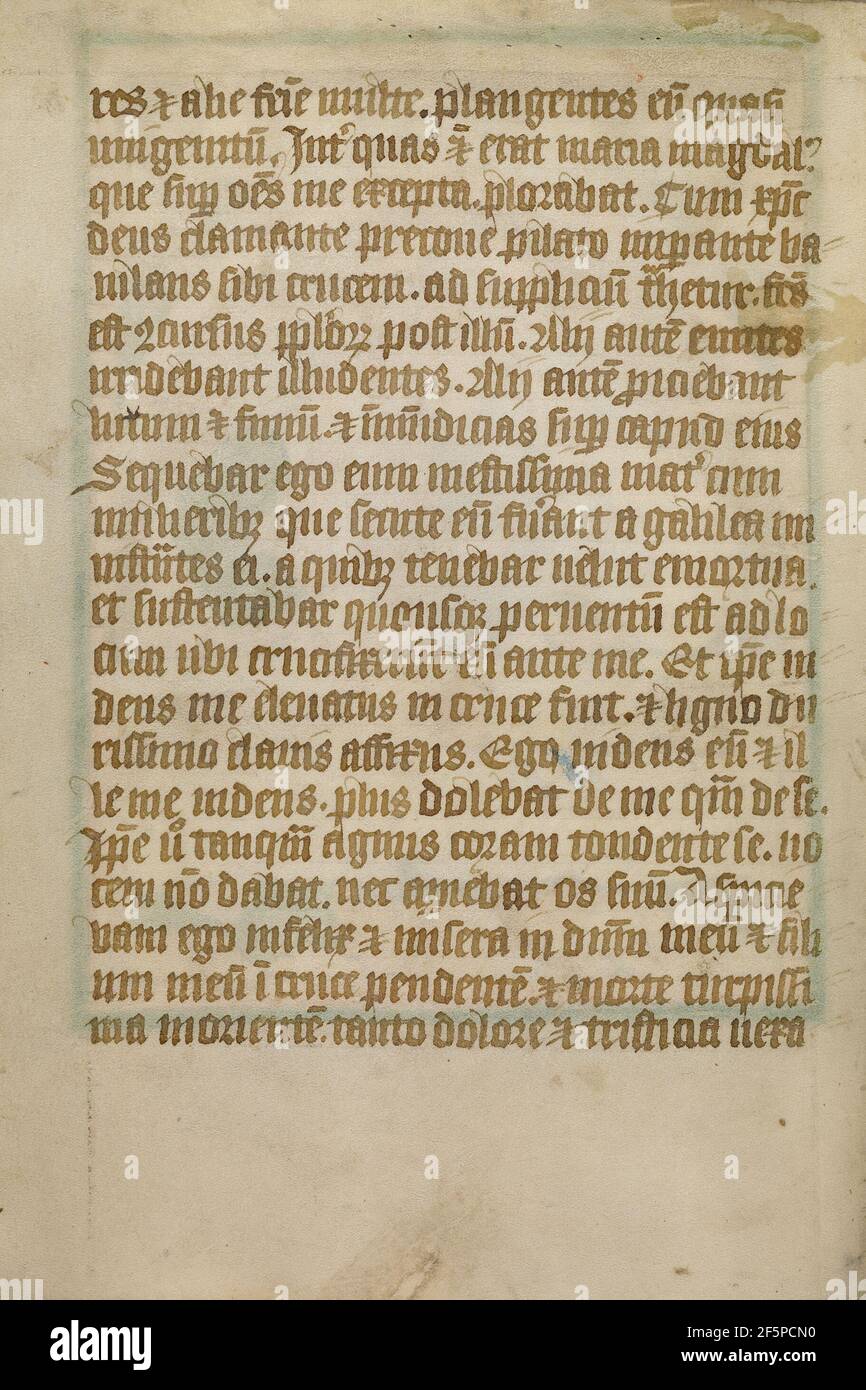 res ⁊ alie fēīe multe. plangentes eū quasi
unigenitū. Int᾿ quas ⁊ erat maria magdal᾿
que sup oēs me excepta. plorabat. Cum xp̄c
deus clamante precone pilato impante ba
iulans sibi crucem. ad suppliciū tͣhetur. fcs̄
est ꝯcursus pplorꝫ post illū. Alij autē euntes
irridebant illudentes. Alij autē piciebant
lutum ⁊ fimū. ⁊ īmūdicias sup capud eius
Sequebar ego eum mestissima mat᾿ cum
mulieribꝫ que secute eū fu᾿ant a galilea mi
nistͣtes ei. a quibꝫ tenebar uelut emortua.
et sustentabar quousqꝫ peruentū est ad lo
cum ubi crucifixerūt eū ante me. Et ip̄e ui
dens me eleuatus in cruce fuit. ⁊ ligno du
rissimo clauis affixus. Ego uidens eū ⁊ il
le me uidens. plus dolebat de me qm̄ de se.
Ip̄e uͦ tanqm̄ agnus coram tondente se. uo
cem nō dabat. nec apiebat os suū. Aspicie
bam ego infelix ⁊ misera in dn̄m meū ⁊ fili
um meū ī cruce pendentē. ⁊ morte turpissi
ma morientē. tanto dolore ⁊ tristicia uexa
alamy
a
alamy
Image ID: 2F5PCN0
www.alamy.com